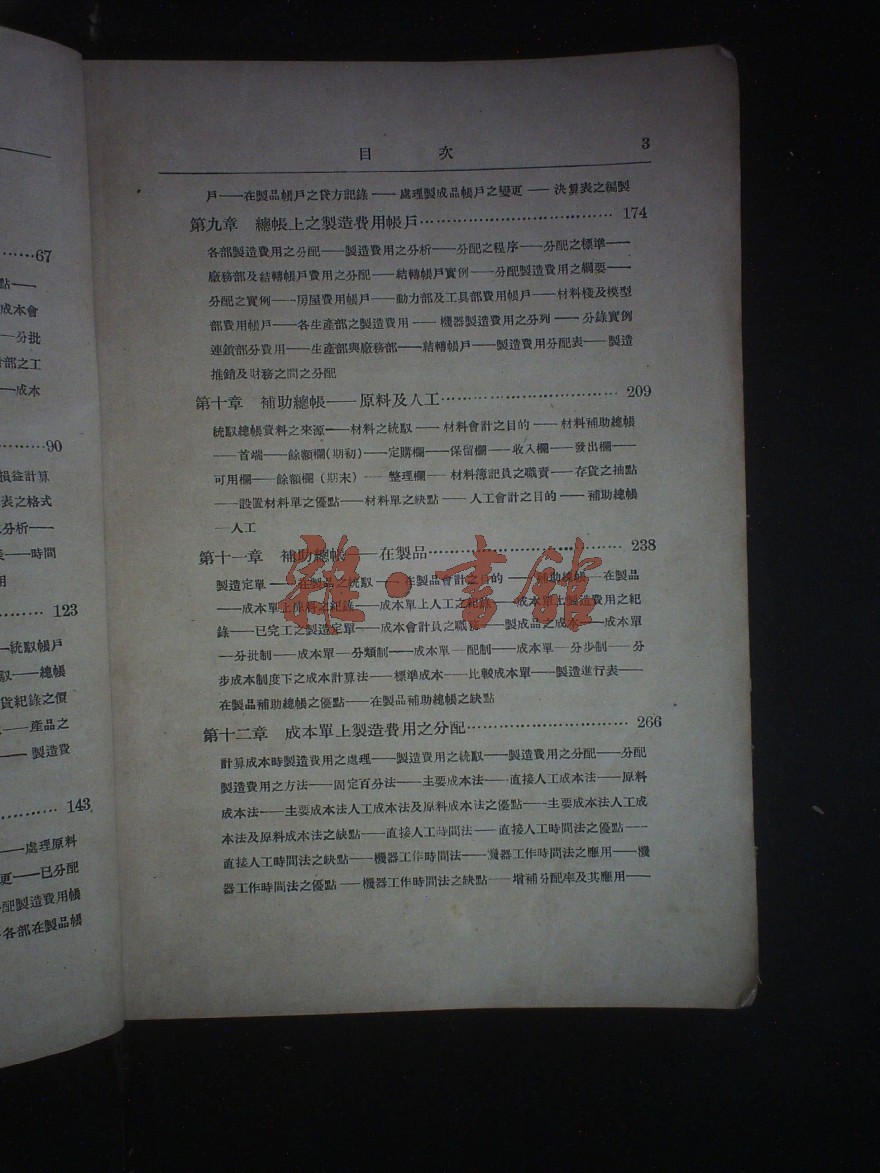 67
點——
成本會
—分批
部之工
—成本
90
損益計算
表之格式
分析——
——時間
用
123
—統馭帳戶
馭——總帳
貨紀錄之價
——產品之
——製造費
143
——處理原料
更——已分配
配製造費用帳
各部在製品帳
目 次 3
戶——在製品帳戶之貸方記錄——處理製成品帳戶之變更——決算表之編製
第九章 總帳上之製造費用帳戶 174
各部製造費用之分配——製造費用之分析——分配之程序——分配之標準——
廠務部及結轉帳戶費用之分配——結轉帳戶實例——分配製造費用之綱要——
分配之實例——房屋費用帳戶——動力部及工具部費用帳戶——材料棧及模型
部費用帳戶——各生產部之製造費用——機器製造費用之分列——分錄實例
連鎖部分費用——生產部與廠務部——結轉帳戶——製造費用分配表——製造
推銷及財務之間之分配
第十章 補助總帳——原料及人工 209
統馭總帳資料之來源——材料之統馭——材料會計之目的——材料補助總帳
——首端——餘額欄(期初)——定購欄——保留欄——收入欄——發出欄——
可用欄——餘額欄(期末)——整理欄——材料簿記員之職責——存貨之抽點
——設置材料單之優點——材料單之缺點——人工會計之目的——補助總帳
—人工
第十一章 補助總帳——在製品 238
製造定單——在製品之統馭——在製品會計之目的——補助總帳—在製品
——成本單上原料之紀錄——成本單上人工之紀錄——成本單上製造費用之紀
錄——已完工之製造定單——成本會計員之職務——製成品之成本——成本單
—分批制——成本單—分類制——成本單—配制——成本單—分步制——分
步成本制度下之成本計算法——標準成本——比較成本單——製造進行表——
在製品補助總帳之優點——在製品補助總帳之缺點
第十二章 成本單上製造費用之分配 266
計算成本時製造費用之處理——製造費用之統馭——製造費用之分配——分配
製造費用之方法——固定百分法——主要成本法——直接人工成本法——原料
成本法——主要成本法人工成本法及原料成本法之優點——主要成本法人工成
本法及原料成本法之缺點——直接人工時間法——直接人工時間法之優點——
直接人工時間法之缺點——機器工作時間法——機器工作時間法之應用——機
器工作時間法之優點——機器工作時間法之缺點——增補分配率及其應用——
雜·書館